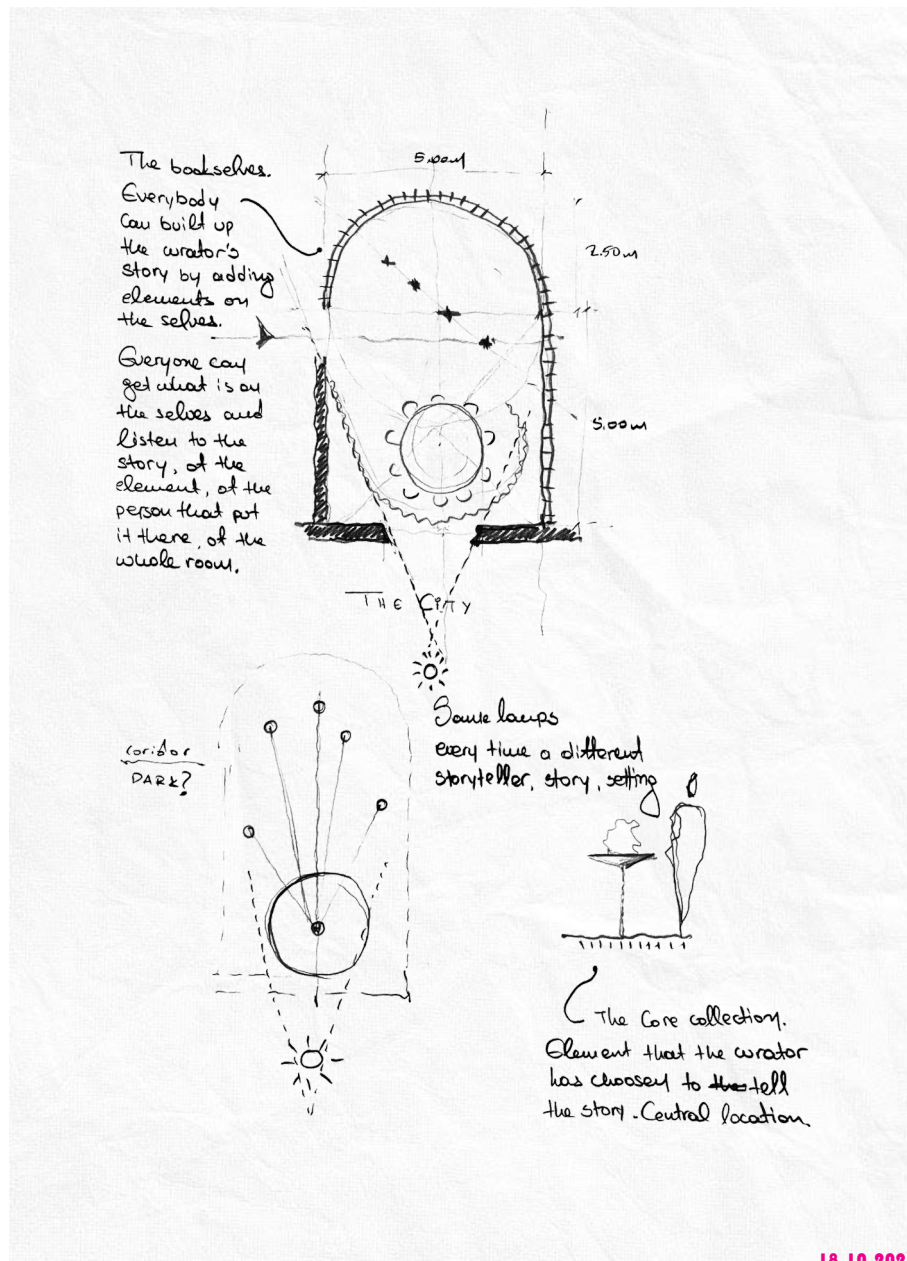 The bookselves.
Everybody
can built up
the curator's
story by adding
elements on
the selves.
Everyone can
get what is on
the selves and
listen to the
story, of the
element, of the
person that put
it there, of the
whole room.
5.00m
2.50m
5.00m
THE CITY
Same lamps
every time a different
storyteller, story, setting
coridor
DARK?
The Core collection.
Element that the curator
has choosen to the tell
the story. Central location.
18.10.202